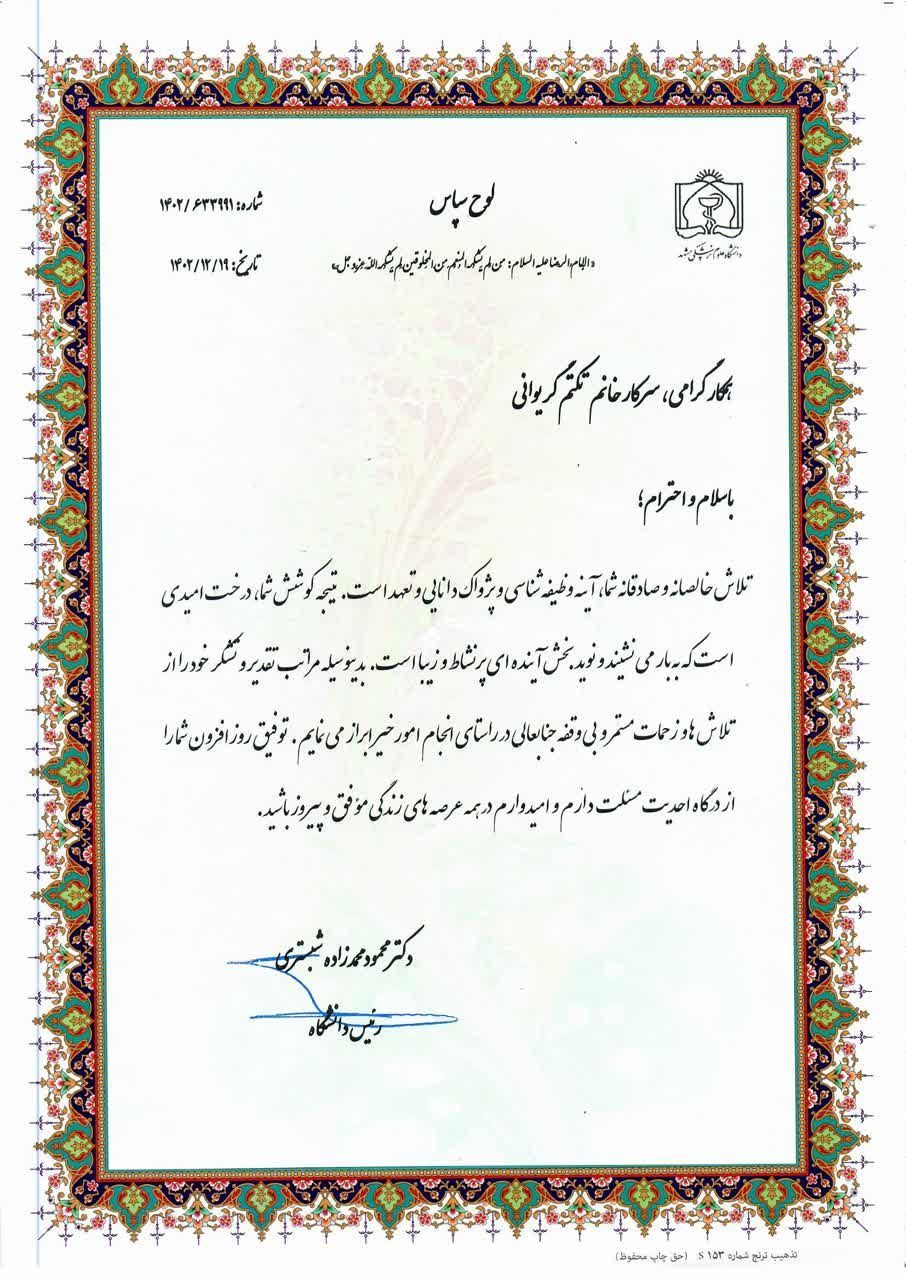 لوح سپاس
شماره: ۱۴۰۲/۶۳۳۹۹۱
دانشگاه علوم پزشکی مشهد
«الامام الرضا علیه السلام: من لم یشکر المنعم من المخلوقین لم یشکر الله عزوجل»
تاریخ: ۱۴۰۲/۱۲/۱۹
همکار گرامی، سرکار خانم تکتم گریوانی
باسلام و احترام؛
تلاش خالصانه و صادقانه شما، آینه وظیفه شناسی و پژواک دانایی و تعهد است. نتیجه کوشش شما، درخت امیدی
است که به بار می نشیند و نوید بخش آینده ای پر نشاط و زیبا است. بدینوسیله مراتب تقدیر و تشکر خود را از
تلاش ها و زحمات مستمر و بی وقفه جنابعالی در راستای انجام امور خیر ابراز می نمایم. توفیق روز افزون شما را
از درگاه احدیت مسئلت دارم و امیدوارم در همه عرصه های زندگی موفق و پیروز باشید.
دکتر محمود محمدزاده شبستری
رئیس دانشگاه
تذهیب ترنج شماره S ۱۵۳ (حق چاپ محفوظ)